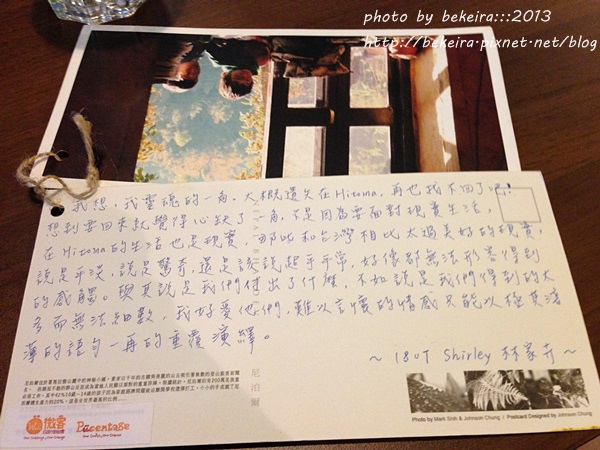 photo by bekeira:::2013
http://bekeira.pixnet.net/blog
我想，我靈魂的一角，大概遺失在Hitoma，再也找不回了吧！
想到要回來就覺得心缺了一角，不是因為要面對現實生活，
在Hitoma的生活也是現實，那些和台灣相比太過美好的現實，
說是平淡，說是驚奇，還是該說超乎平常，好像都無法形容得到
的感觸。與其說是我們付出了什麼，不如說是我們得到的太
多而無法細數，我好愛他們，難以言喻的情感只能以極其淺
薄的語句一再的重覆演繹。
～180T Shirley 林家卉～
微客
Pacentage
Photo by Mark Shih & Johnson Chung / Postcard Designed by Johnson Chung